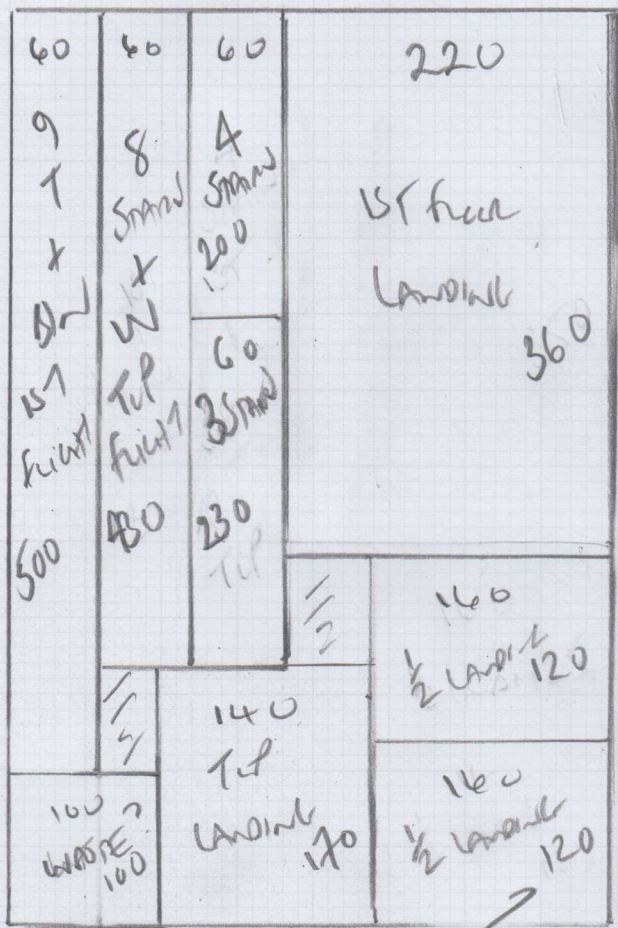 60
9
T
X
DN
1ST
FLIGHT
500
60
8
STAIRS
X
W
TOP
FLIGHT
430
60
4
STAIRS
200
60
3 STAIRS
230
TOP
220
1ST FLOOR
LANDING
360
160
1/2 LANDING
120
160
1/2 LANDING
120
140
TOP
LANDING
170
100
WASTE
100